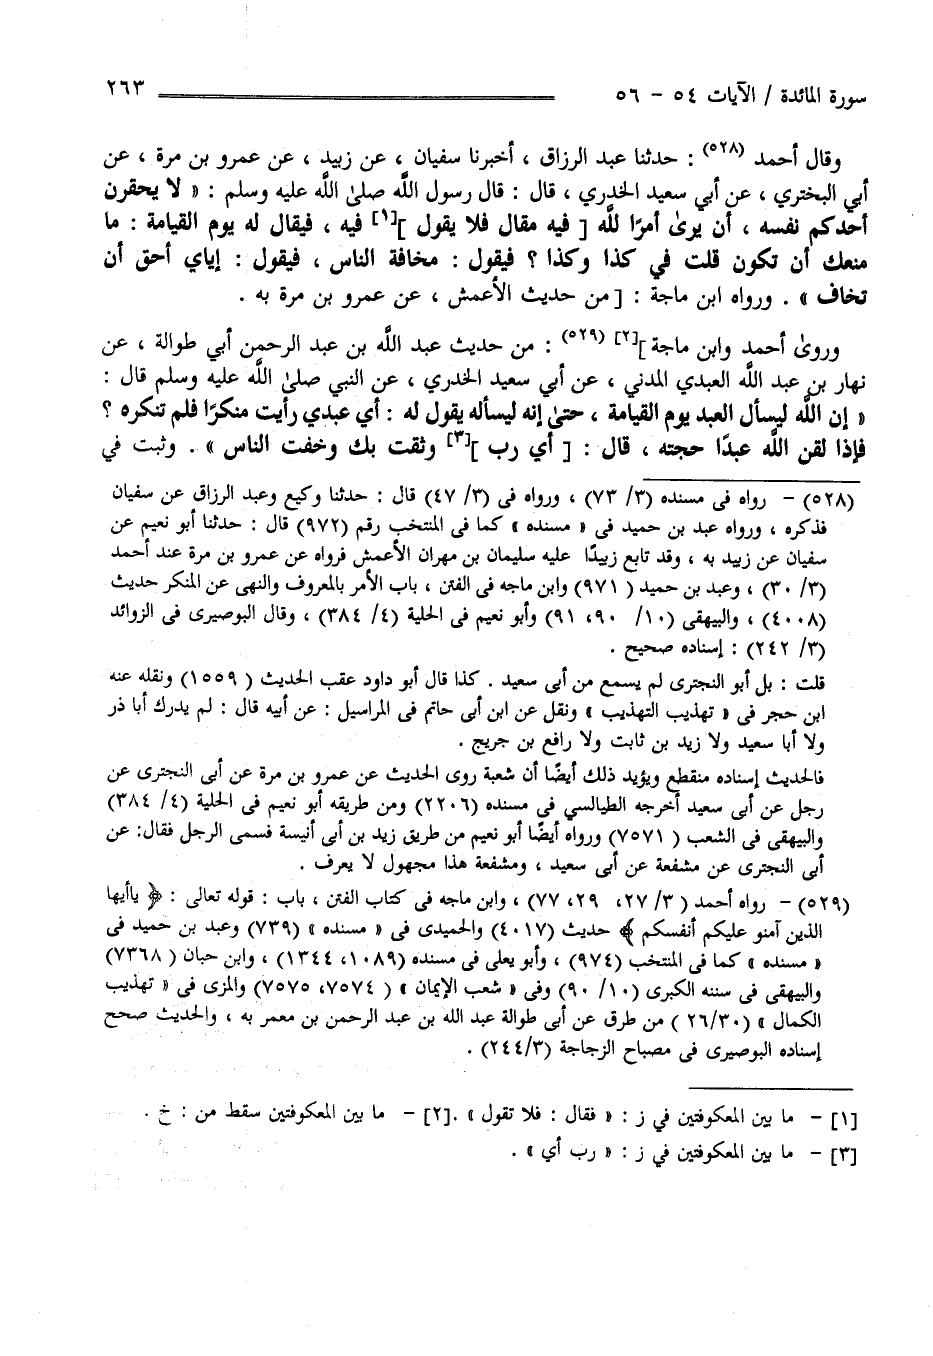 سورة المائدة / الآيات ٥٤ - ٥٦ ٢٦٣
وقال أحمد (٥٢٨) : حدثنا عبد الرزاق ، أخبرنا سفيان ، عن زبيد ، عن عمرو بن مرة ، عن
أبي البختري ، عن أبي سعيد الخدري ، قال : قال رسول اللَّه صلى اللَّه عليه وسلم : « لا يحقرن
أحدكم نفسه ، أن يرىٰ أمرًا للَّه [ فيه مقال فلا يقول ][١] فيه ، فيقال له يوم القيامة : ما
منعك أن تكون قلت في كذا وكذا ؟ فيقول : مخافة الناس ، فيقول : إياي أحق أن
تخاف » . ورواه ابن ماجة : [من حديث الأعمش ، عن عمرو بن مرة به .
وروىٰ أحمد وابن ماجة ][٢] (٥٢٩) : من حديث عبد اللَّه بن عبد الرحمن أبي طوالة ، عن
نهار بن عبد اللَّه العبدي المدني ، عن أبي سعيد الخدري ، عن النبي صلىٰ اللَّه عليه وسلم قال :
« إن اللَّه ليسأل العبد يوم القيامة ، حتىٰ إنه ليسأله يقول له : أي عبدي رأيت منكرًا فلم تنكره ؟
فإذا لقن اللَّه عبدًا حجته ، قال : [ أي رب ][٣] وثقت بك وخفت الناس » . وثبت في
(٥٢٨) - رواه فى مسنده (٣/ ٧٣) ، ورواه فى (٣/ ٤٧) قال : حدثنا وكيع وعبد الرزاق عن سفيان
فذكره ، ورواه عبد بن حميد فى « مسنده » كما فى المنتخب رقم (٩٧٢) قال : حدثنا أبو نعيم عن
سفيان عن زبيد به ، وقد تابع زبيدًا عليه سليمان بن مهران الأعمش فرواه عن عمرو بن مرة عند أحمد
(٣/ ٣٠) ، وعبد بن حميد ( ٩٧١) وابن ماجه فى الفتن ، باب الأمر بالمعروف والنهى عن المنكر حديث
(٤٠٠٨) ، والبيهقى (١٠/ ٩٠، ٩١) وأبو نعيم فى الحلية (٤/ ٣٨٤) ، وقال البوصيرى فى الزوائد
(٣/ ٢٤٢) : إسناده صحيح .
قلت : بل أبو النجترى لم يسمع من أبى سعيد . كذا قال أبو داود عقب الحديث ( ١٥٥٩) ونقله عنه
ابن حجر فى « تهذيب التهذيب » ونقل عن ابن أبى حاتم فى المراسيل : عن أبيه قال : لم يدرك أبا ذر
ولا أبا سعيد ولا زيد بن ثابت ولا رافع بن جريج .
فالحديث إسناده منقطع ويؤيد ذلك أيضًا أن شعبة روى الحديث عن عمرو بن مرة عن أبى النجترى عن
رجل عن أبى سعيد أخرجه الطيالسي في مسنده (٢٢٠٦) ومن طريقه أبو نعيم فى الحلية (٤/ ٣٨٤)
والبيهقى فى الشعب ( ٧٥٧١) ورواه أيضًا أبو نعيم من طريق زيد بن أبى أنيسة فسمى الرجل فقال: عن
أبى النجترى عن مشفعة عن أبى سعيد ، ومشفعة هذا مجهول لا يعرف .
(٥٢٩) - رواه أحمد ( ٣/ ٢٧، ٢٩، ٧٧) ، وابن ماجه فى كتاب الفتن ، باب : قوله تعالى : ﴿ ياأيها
الذين آمنو عليكم أنفسكم ﴾ حديث (٤٠١٧) والحميدى فى « مسنده » (٧٣٩) وعبد بن حميد فى
« مسنده » كما فى المنتخب (٩٧٤) ، وأبو يعلى فى مسنده (١٠٨٩، ١٣٤٤) ، وابن حبان ( ٧٣٦٨)
والبيهقى فى سننه الكبرى (١٠/ ٩٠) وفى « شعب الإيمان » ( ٧٥٧٤، ٧٥٧٥) والمزى فى « تهذيب
الكمال » (٢٦/٣٠ ) من طرق عن أبى طوالة عبد الله بن عبد الرحمن بن معمر به ، والحديث صحح
إسناده البوصيرى فى مصباح الزجاجة (٢٤٤/٣) .
[١] - ما بين المعكوفتين في ز : « فقال : فلا تقول » .[٢] - ما بين المعكوفتين سقط من : خ .
[٣] - ما بين المعكوفتين في ز : « رب أي » .